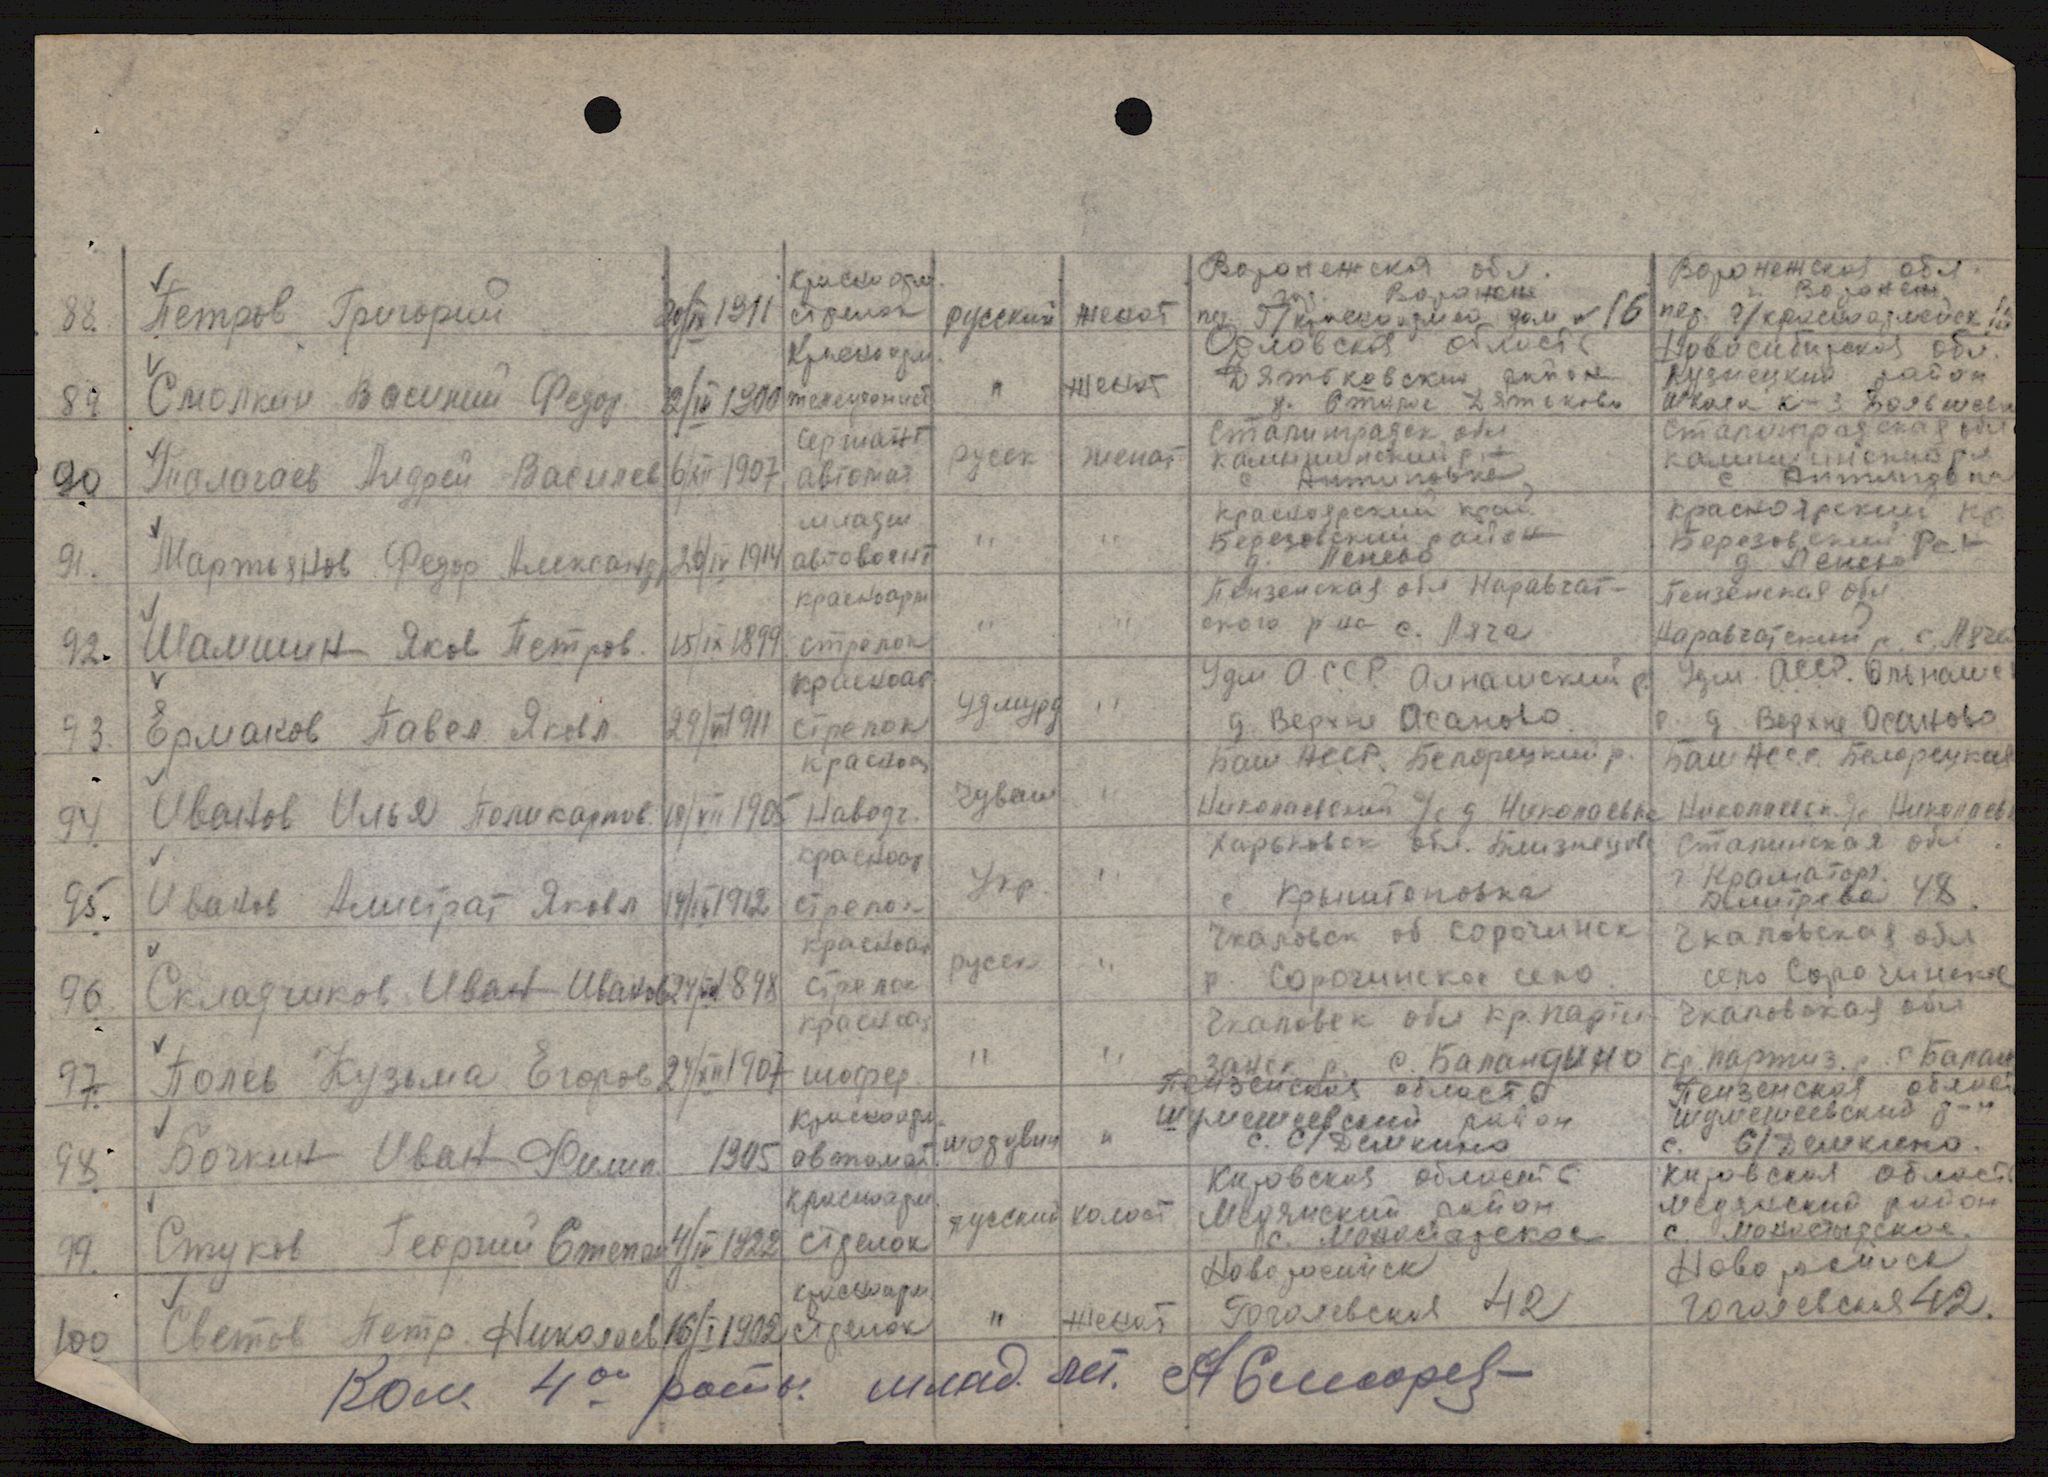 88. Петров Григорий 20/IX 1911 Красноарм. стрелок русский женат Воронежская обл. гор. Воронеж пер. Г/красноармеа дом № 16 Воронежская обл. г. Воронеж пер. Г/красноармейск
89 Смолкин Василий Федор 2/IV 1900 Красноарм. телефонист " женат Орловская область Дятьковский район д. Старое Дятьково Новосибирская обл. Кузнецкий район школа к-з
90 Талагаев Андрей Василев 6/XII 1907 сержант автомат русск женат Сталинградск обл камышинский р- с Антиповка Сталинградская обл камышинский р с Антиповка
91. Мартьянов Федор Александр 20/IV 1914 младш автовоент " " Красноярский край Березовский район д. Ленево Красноярский кр Березовский р-н д Ленево
92. Шамшин Яков Петров. 15/IX 1899 красноарм стрелок " " Пензенская обл Наравчат-ского р на с. Ляча Пензенская обл Наравчатский р. с. Ляча
93. Ермаков Павел Яковл 29/VI 1911 красноар стрелок удмурд " Удм АССР. Алнашский р. д. Верхне Асаново Удм. АССР. Альнашс р. д Верхне Осаново
94. Иванов Илья Поликарпов. 18/VII 1905 красноар Наводч. Чуваш " Баш АССР. Белорецкий р. Николаевский с/с д Николаевка Баш АССР. Белорецкая Николаевск с/с Николаевк
95. Иванов Алистрат Яковл 14/IV 1912 красноар стрелок Укр. " Харьковск обл. Близнецов с Крыштоповка Сталинская обл. г Краматор. Дмитрева 48.
96. Складчиков Иван Иванов 24/VI 1898 красноар стрелок русск " Чкаловск об Сорочинск р Сорочинское село. Чкаловская обл село Сорочинское
97. Полев Кузьма Егоров 24/XII 1907 красноар шофер. " " Чкаловск обл кр. парти-занск р. с. Баландино Чкаловская обл кр. партиз. р. с Балан
98. Бочкин Иван Филип. 1905 Красноарм. автомат. мордвин " Пензенская область Шумешеевский район с. С/Демкино Пензенская област Шумешеевский р-н с. С/Демкино.
99. Стуков Георгий Степан 4/IV 1922 Красноарм. стрелок русский холост Кировская область Медянский район с. Монастырское Кировская область Медянский район с. Монастырское.
100 Светов Петр. Николаев 16/I 1902 красноарм. стрелок " женат Новоросийск Гоголевская 42 Новоросийск Гоголевская 42.
Ком. 4ой роты. млад. лт.